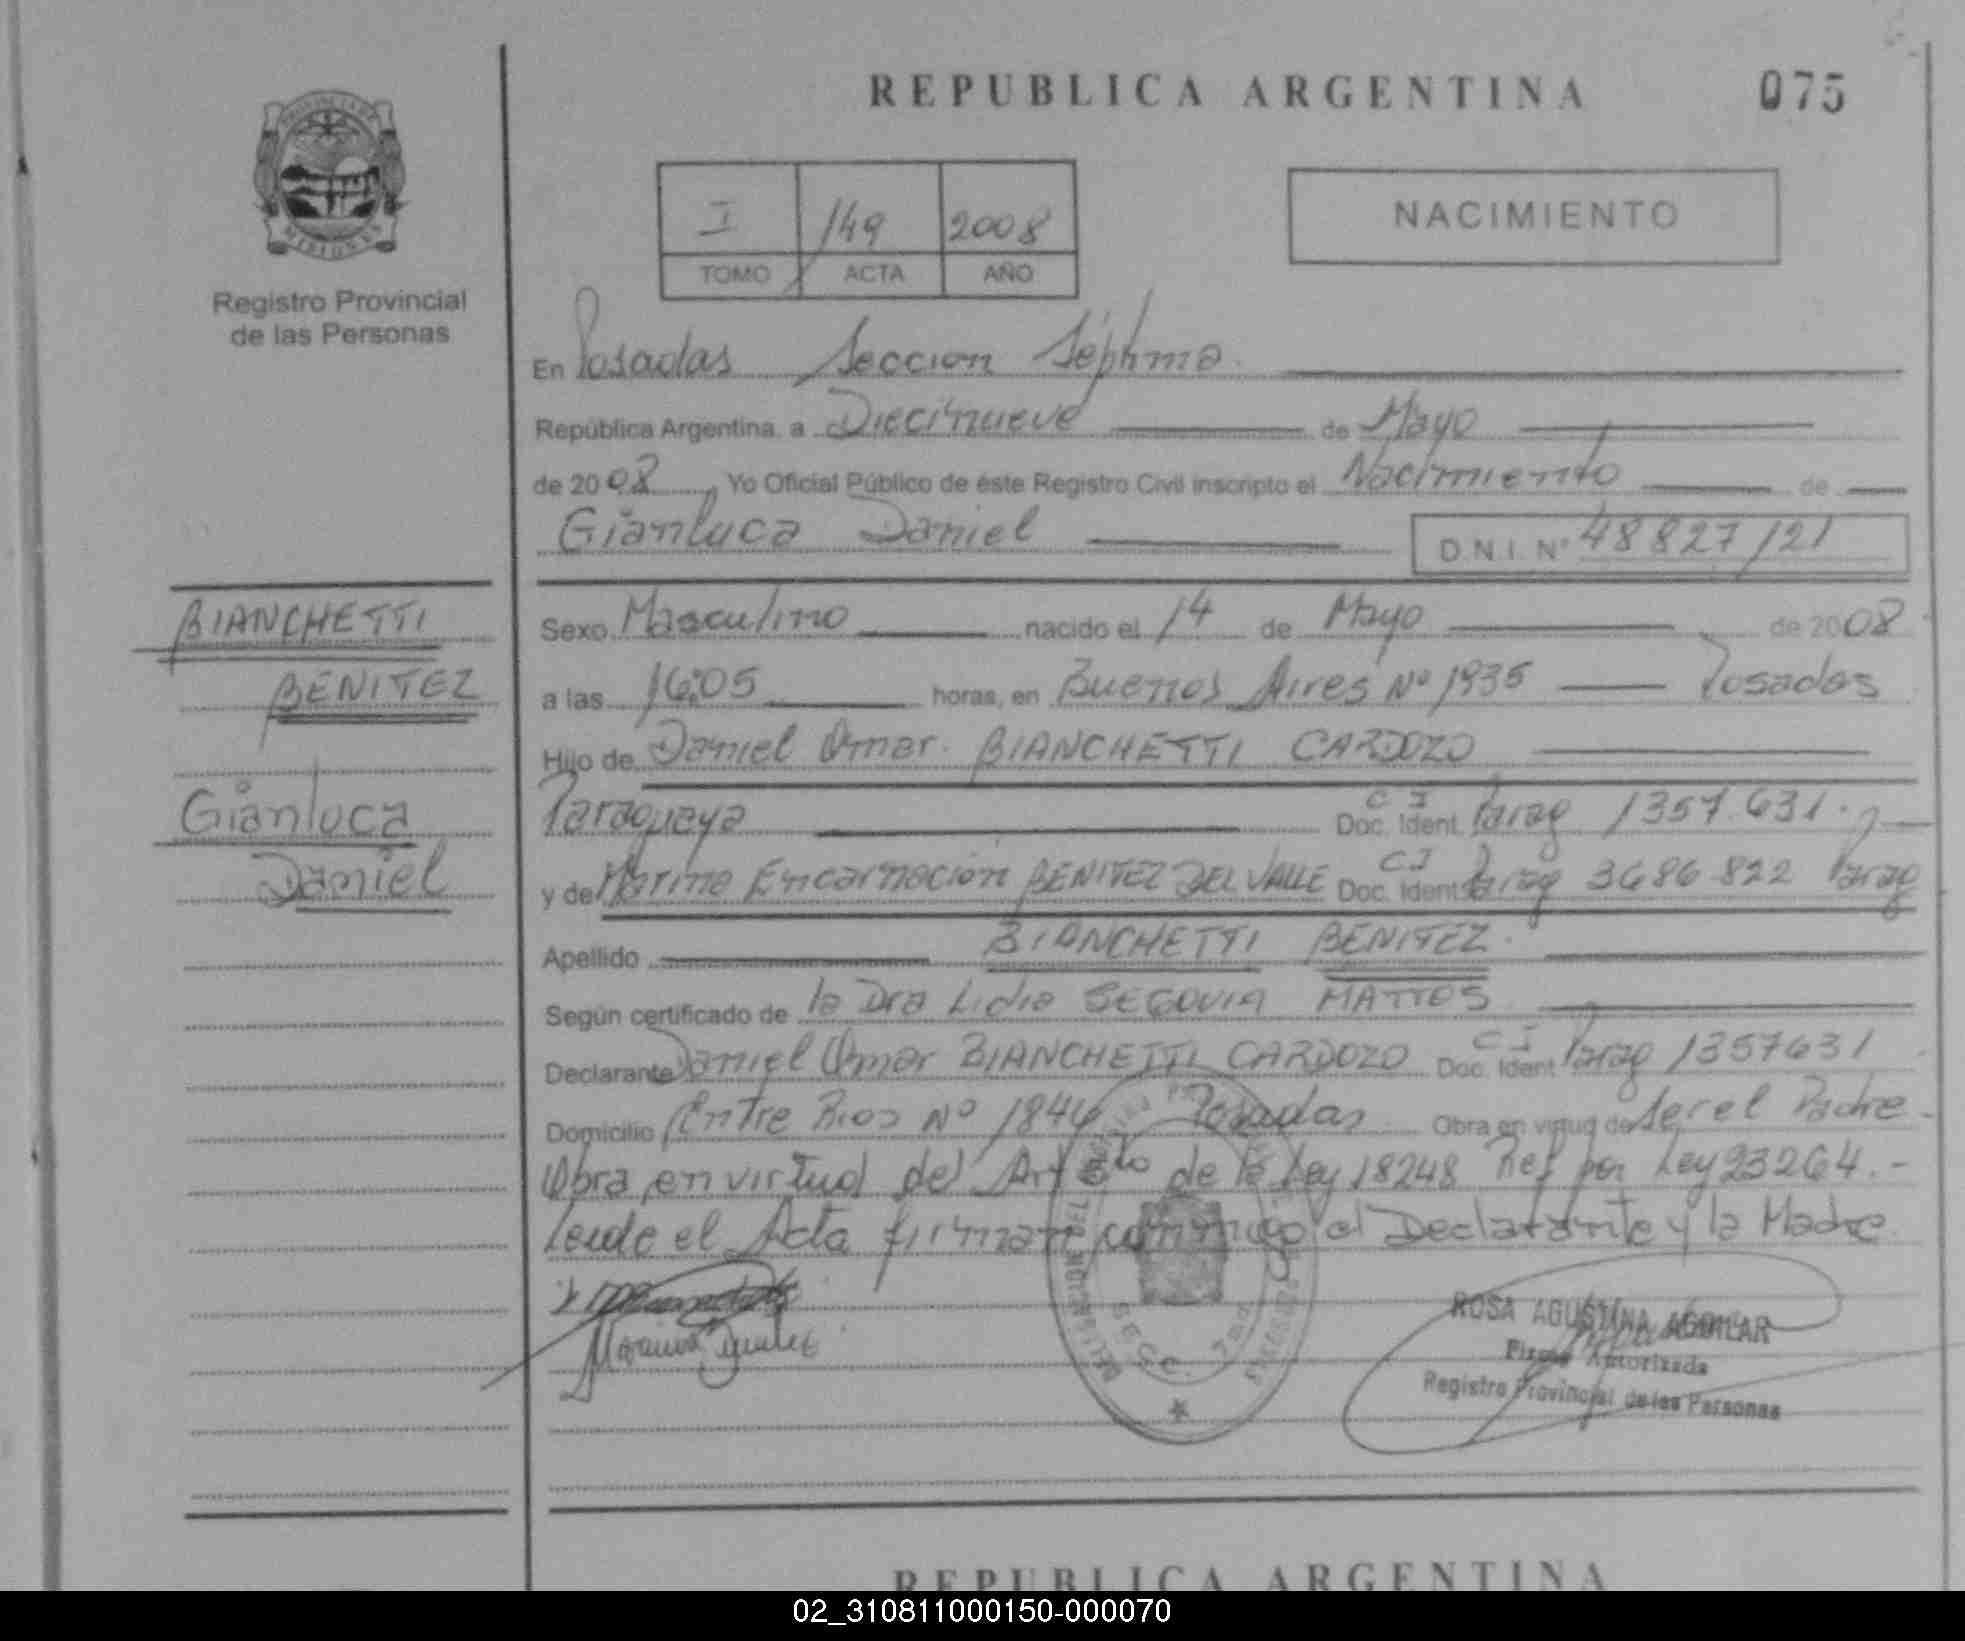 REPUBLICA ARGENTINA
075
PROVINCIA DE
MISIONES
Registro Provincial
de las Personas
I 149 2008
TOMO ACTA AÑO
NACIMIENTO
En Posadas Sección Séptima
República Argentina, a Diecinueve de Mayo
de 2008, Yo Oficial Público de éste Registro Civil inscripto el Nacimiento de
Gianluca Daniel D.N.I. Nº 48827121
BIANCHETTI
BENITEZ
Gianluca
Daniel
Sexo Masculino nacido el 14 de Mayo de 2008
a las 16:05 horas, en Buenos Aires Nº 1935 Posadas
Hijo de Daniel Omar BIANCHETTI CARDOZO
Paraguaya C I Doc. Ident. Parag 1357.631.
y de Marina Encarnación BENITEZ DEL VALLE C I Doc. Ident. Parag 3686822 Parag
Apellido BIANCHETTI BENITEZ
Según certificado de la Dra Lidia SEGOVIA MATTOS
Declarante Daniel Omar BIANCHETTI CARDOZO C I Doc. Ident Parag 1357631
Domicilio Entre Rios Nº 1846 Posadas Obra en virtud de Ser el Padre
Obra en virtud del Art 5to de la Ley 18248 Ref por Ley 23264.-
Leida el Acta firman conmigo el Declarante y la Madre
DELEGACION
SECC. 7ma
ROSA AGUSTINA AGUILAR
Firma Autorizada
Registro Provincial de las Personas
REPUBLICA ARGENTINA
02_310811000150-000070